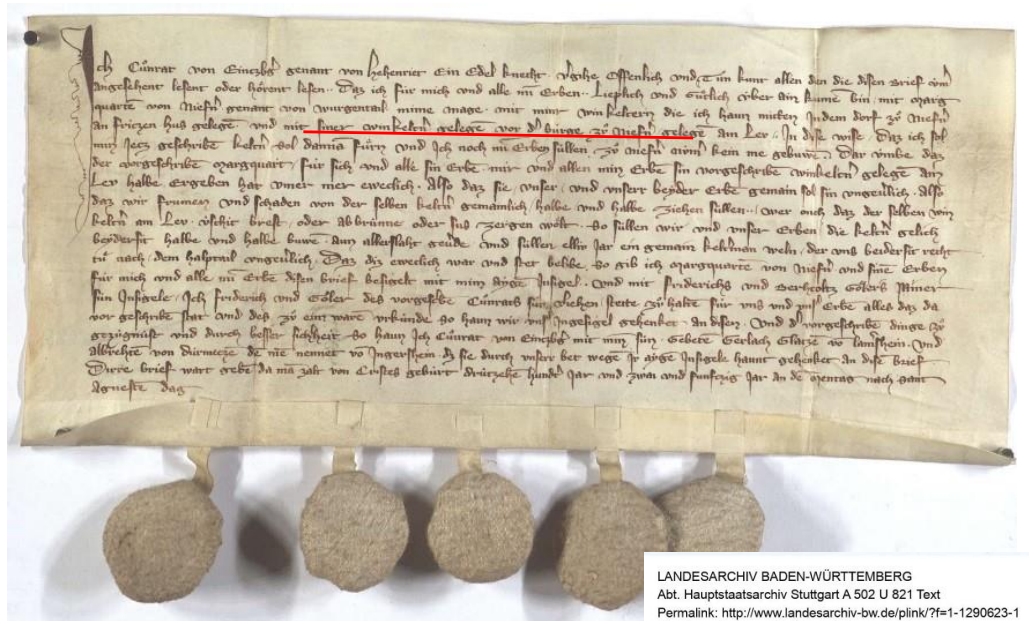 Ich Cůnrat von Eintzbg̃ genant von Hehenriet Ein Edel knecht v̓gihe Offenlich vnd kunt allen den die disen brief
angesehent lesent oder hörent lesen Daz ich für mich vnd alle min Erben Lieplich vnd Gütlich über ain kumē bin mit Marg
quartē von Niefn̄ genant von wurgental mime mage mit miner winkeltern die ich haun mitten Indem dorf zů Niefn̄
an friczen hus gelegē vnd mit siner winkeltn̄ gelegē vor d̓ bürge zů Niefn̄ gelegē am Ler In dise wise Daz ich sol
min geschribē keltn̄ sol füren vnd Ich noch min Erben süllen zů Niefn̄ kein me gebuwē Dar vmbe daz
der vorgeschribē Marquart für sich vnd alle sin Erbē mir vnd allen min Erbē sin vorgeschribē winkeltn̄ gelegē am
Ler halbe Ergeben hat ymer mer eweclich Also daz sie vnser vnd vnserr beyder Erbē gemain sol sin vngeůlich Also
daz wir frumen vnd schaden von der selben keltn̄ gemainlich halbe vnd halbe ziehen süllen wer ouch daz der selben win
keltn̄ am Ler brest oder abbrünne oder sus zergen wölt So süllen wir vnd vnser Erben die keltn̄ gelich
beydersit halbe vnd halbe buwē vnd süllen Jar ein gemain keltman weln der vns beidersit recht
tů nach dem halptail vngeůlich Daz diz eweclich war vnd stet belibe So gib ich Margquartē von Niefn̄ vnd sinē Erben
für mich vnd alle min Erbē disen brief besigelt mit mim aygē Insigel vnd mit Friderichs vnd Gölers miner
sün Insigele Ich Friderich vnd Göler des vorgeschribē Cůnrats sün stette zů haltē für vns vnd vnser Erbē alles daz da
vor geschribē stat vnd des zů eim warē vrkünde so haun wir Ingesigel gehenket an disen vnd d̓ vorgeschribē dinge zů
gezügnüst vnd durch besser so haun Ich Cůnrat von Eintzbg̃ mit min sün Gebetē Gerlach vnd
Albrehtē von Dürmentze nennet vō Ingersheim dz sie durch vnserr bet wege Ir aygē Insigele haunt gehenket an disē brief
Dirre brief wart gebē da mā zalt von Cristes gebürt drützehē hundt̓ Jar vnd zwai vnd funftzig Jar an dē Mentag nach sant
Agnestē dag
LANDESARCHIV BADEN-WÜRTTEMBERG
Abt. Hauptstaatsarchiv Stuttgart A 502 U 821 Text
Permalink: http://www.landesarchiv-bw.de/plink/?f=1-1290623-1